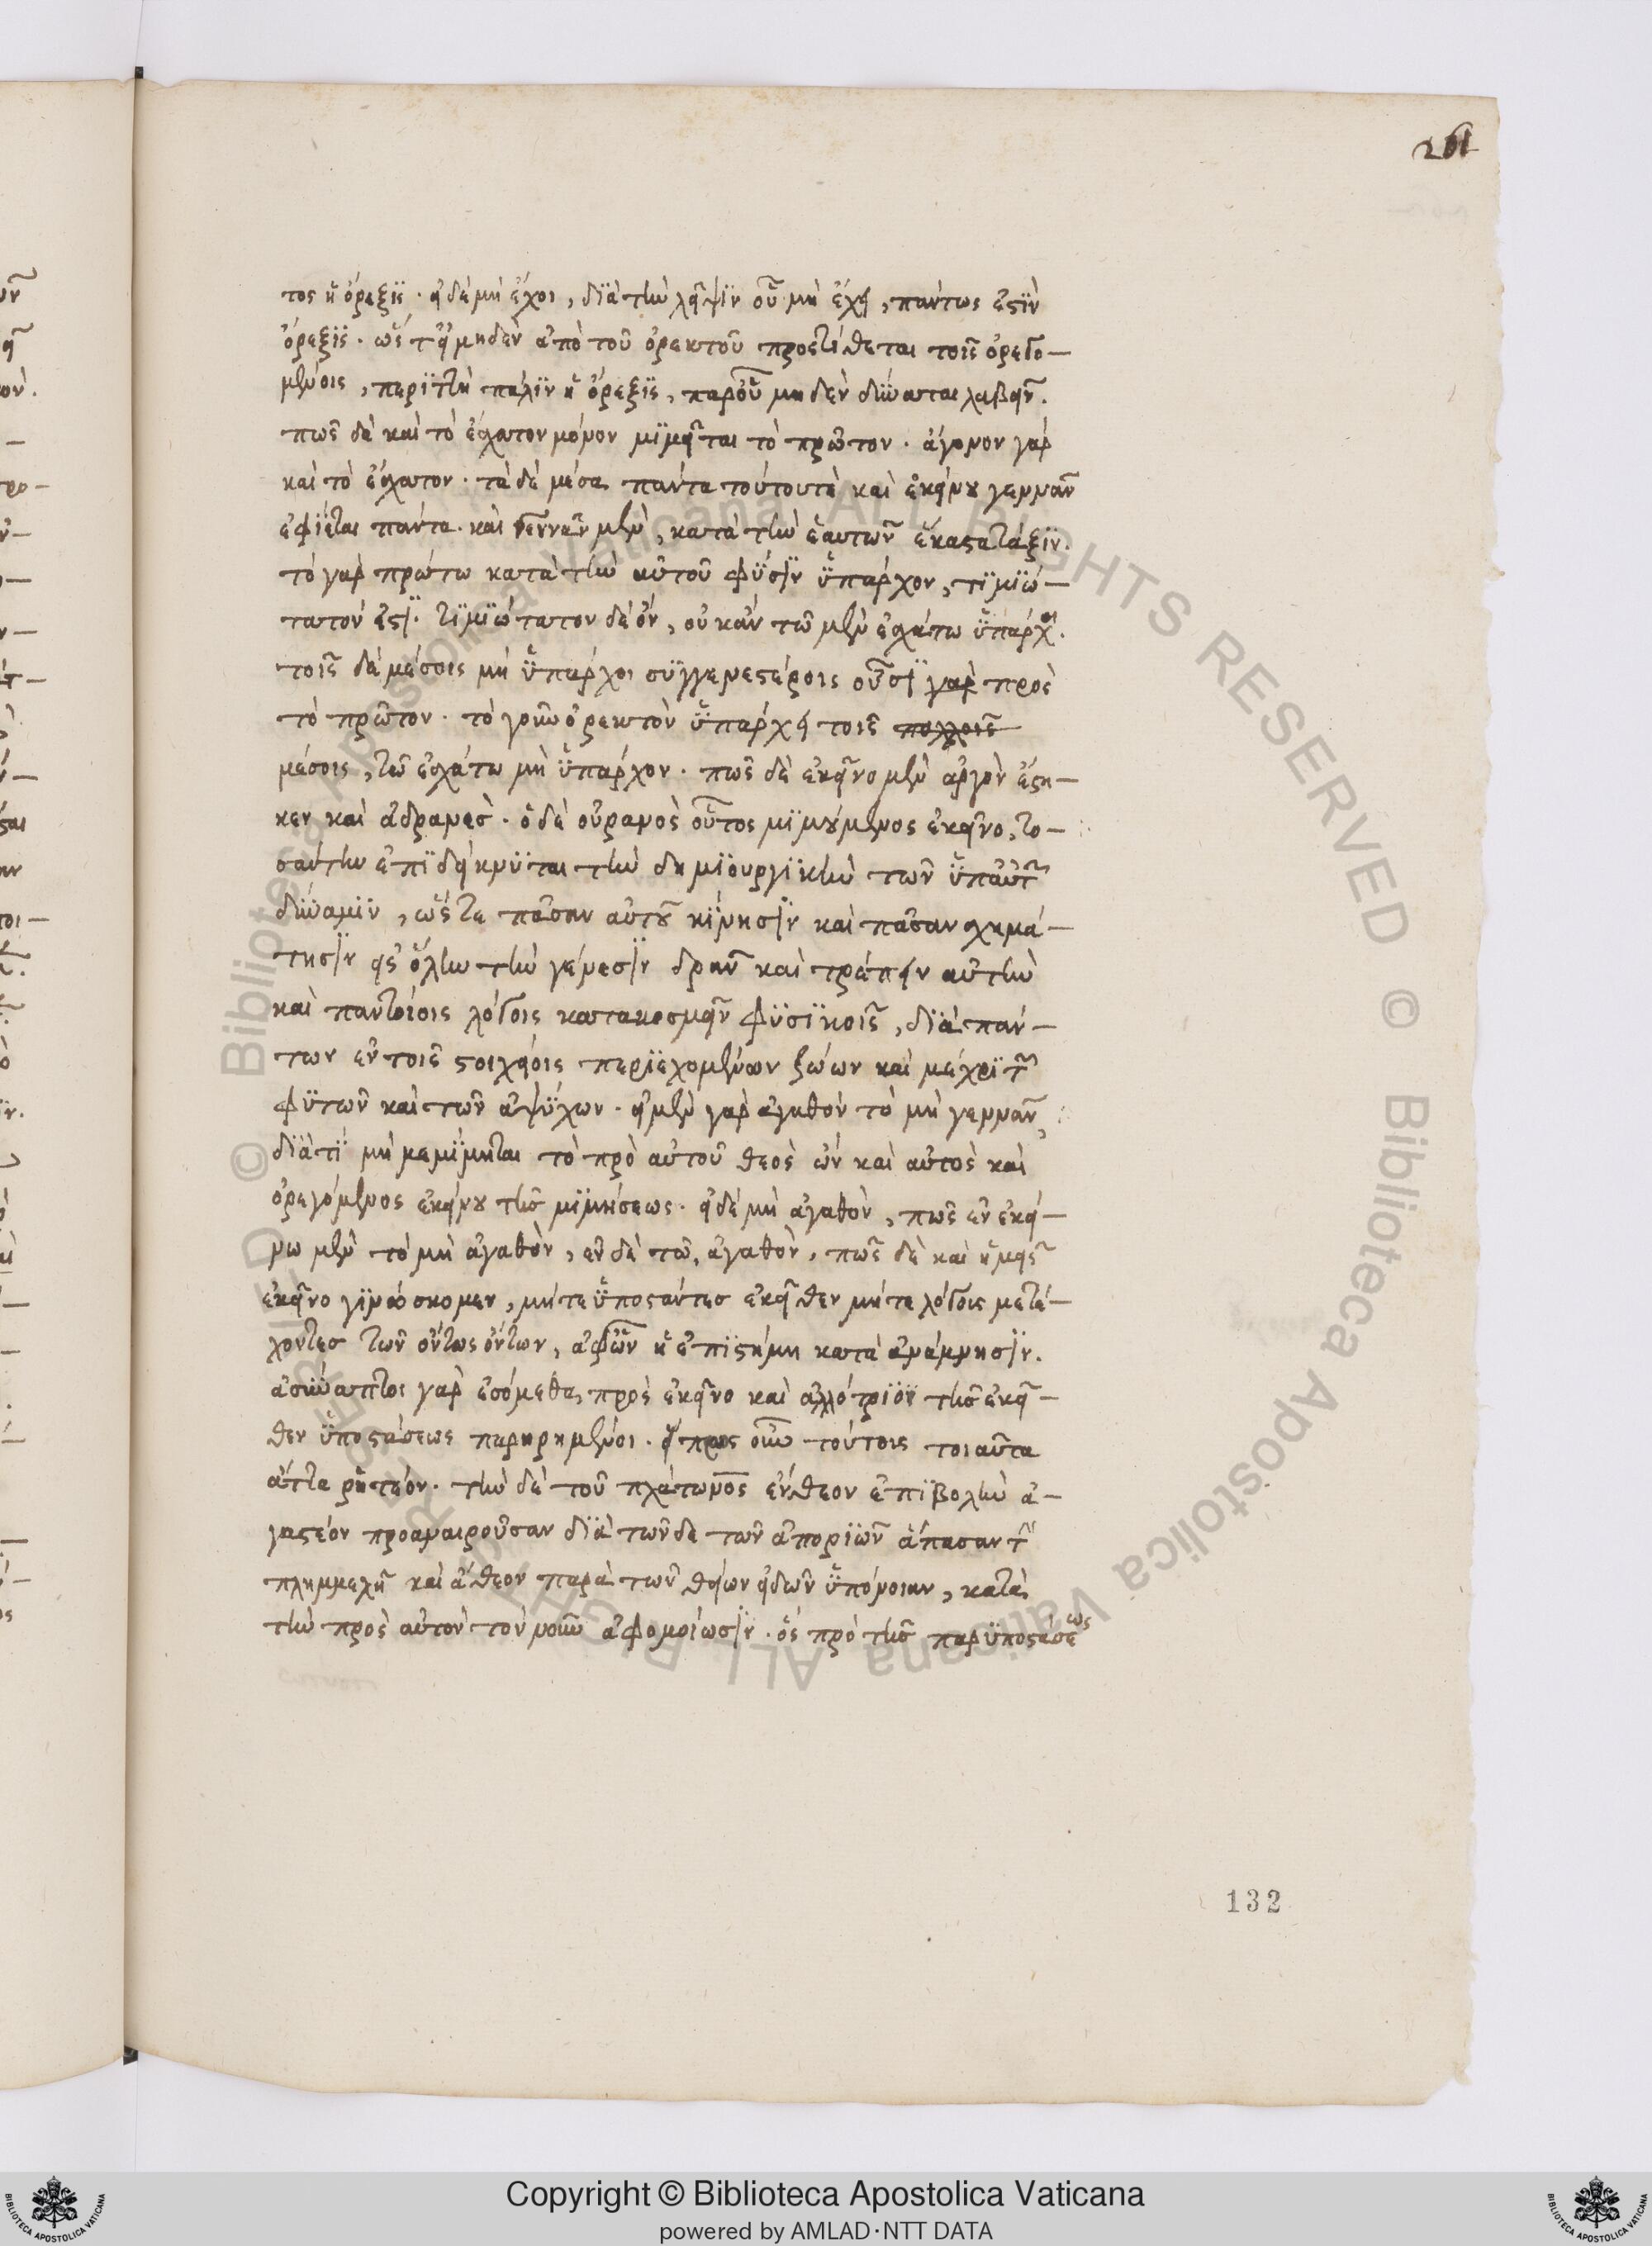 261
τος ἡ ὄρεξις· εἰ δὲ μὴ ἔχοι, διὰ τὴν λεῖψιν οὗ μὴ ἔχει, πάντως ἐστὶν
ὄρεξις. ὥστ' εἰ μηδὲν ἀπὸ τοῦ ὀρεκτοῦ προστίθεται τοῖς ὀρεγο-
μένοις, περιττὴ πάλιν ἡ ὄρεξις, παρ' οὗ μηδὲν δύναται λαβεῖν.
πῶς δὲ καὶ τὸ ἔσχατον μόνον μιμεῖται τὸ πρῶτον. ἄγονον γὰρ
καὶ τὸ ἔσχατον. τὰ δὲ μέσα πάντα τούτου τὲ καὶ ἐκείνου γεννᾶν
ἐφίεται πάντα. καὶ γεννᾶν μὲν, κατὰ τὴν ἑαυτῶν ἕκαστα τάξιν.
τὸ γὰρ πρώτω κατὰ τὴν αὐτοῦ φύσιν ὑπάρχον, τιμιώ-
τατόν ἐστι. τιμιώτατον δὲ ὂν, οὐκ ἂν τῶ μὲν ἐσχάτω ὑπάρχοι.
τοῖς δὲ μέσοις μὴ ὑπάρχοι συγγενεστέροις οὖσι γὰρ πρὸς
τὸ πρῶτον. τὸ γοῦν ὀρεκτὸν ὑπάρχει τοῖς πολλοῖς
μέσοις, τῶ ἐσχάτω μὴ ὑπάρχον. πῶς δὲ ἐκεῖνο μὲν ἀργὸν ἕστη-
κεν καὶ ἀδρανὲς. ὁ δὲ οὐρανὸς οὗτος μιμούμενος ἐκεῖνο, το-
σαύτην ἐπιδείκνυται τὴν δημιουργικὴν τῶν ὑπ' αὐτὸν
δύναμιν, ὥστε πᾶσαν αὐτοῦ κίνησιν καὶ πᾶσαν σχημά-
τησιν εἰς ὅλην τὴν γένεσιν δρᾶν καὶ τρέπειν αὐτὴν
καὶ παντοίοις λόγοις κατακοσμεῖν φυσικοῖς, διὰ πάν-
των ἐν τοῖς στοιχείοις περιεχομένων ζώων καὶ μέχρι τῶν
φυτῶν καὶ τῶν ἀψύχων. εἰ μὲν γὰρ ἀγαθὸν τὸ μὴ γεννᾶν,
διὰ τί μὴ μεμίμηται τὸ πρὸ αὐτοῦ θεὸς ὢν καὶ αὐτὸς καὶ
ὀρεγόμενος ἐκείνου τῆς μιμήσεως. εἰ δὲ μὴ ἀγαθὸν, πῶς ἐν ἐκεί-
νω μὲν τὸ μὴ ἀγαθὸν, ἐν δὲ τῶ, ἀγαθὸν, πῶς δὲ καὶ ἡμεῖς
ἐκεῖνο γινώσκομεν, μήτε ὑποστάντες ἐκεῖθεν μήτε λόγοις μετέ-
χοντες τῶν ὄντως ὄντων, ἀφ' ὧν ἡ ἐπιστήμη κατὰ ἀνάμνησιν.
ἀσύναπτοι γὰρ ἐσόμεθα, πρὸς ἐκεῖνο καὶ ἀλλότριοι τῆς ἐκεῖ-
θεν ὑποστάσεως παρῃρημένοι. πρὸς οὖν τούτοις τοιαῦτα
ἄττα ῥητέον. τὴν δὲ τοῦ πλάτωνος ἔνθεον ἐπιβολὴν ἀ-
γαστέον προαναιροῦσαν διὰ τῶνδε τῶν ἀποριῶν ἅπασαν τὴν
πλημμελῆ καὶ ἄθεον παρὰ τῶν θείων εἰδῶν ὑπόνοιαν, κατὰ
τὴν πρὸς αὐτὸν τὸν νοῦν ἀφομοίωσιν. ὃς πρὸ τῆς παρυποστάσεως
132